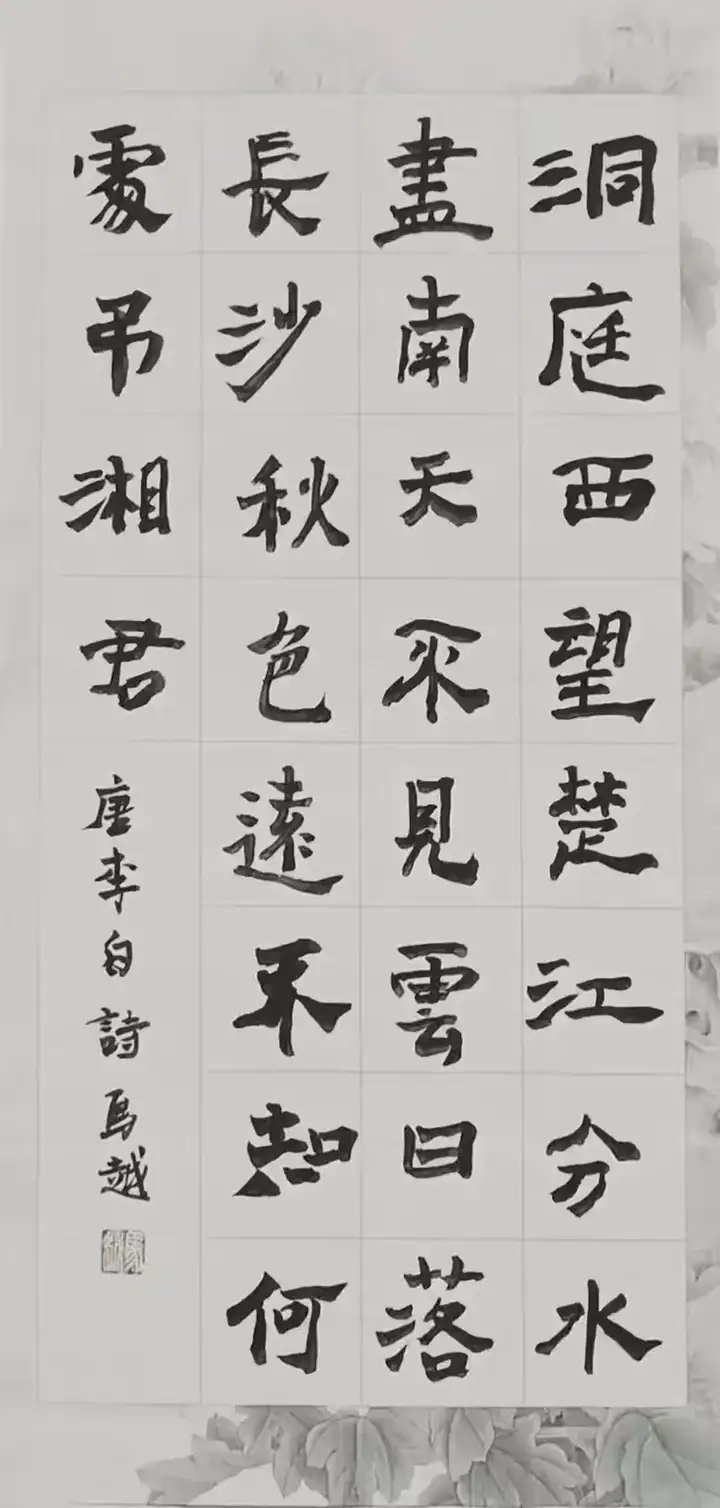 洞庭西望楚江分水
盡南天不見雲日落
長沙秋色遠不知何
處吊湘君
唐李白詩馬越